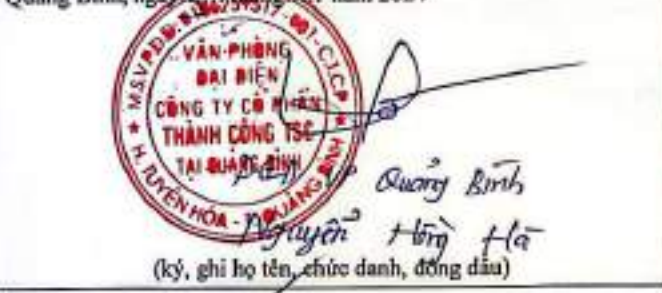 Quảng Bình,
M.S.V.P.Đ.D: 001-C.T.C.P
VĂN PHÒNG
ĐẠI DIỆN
CÔNG TY CỔ PHẦN
THÀNH CÔNG TSC
TẠI QUẢNG BÌNH
H. TUYÊN HÓA - T. QUẢNG BÌNH
Quảng Bình
Nguyễn Hồng Hà
(ký, ghi họ tên, chức danh, đóng dấu)